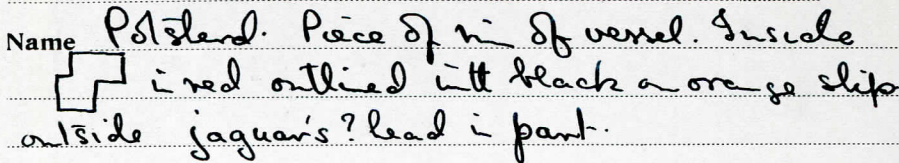 Name Potsherd. Piece of rim of vessel. Inside
in red outlined with black on orange slip
outside jaguar's? head in part.